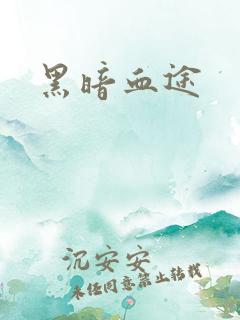 黑暗血途
沉安安
未经同意禁止转载